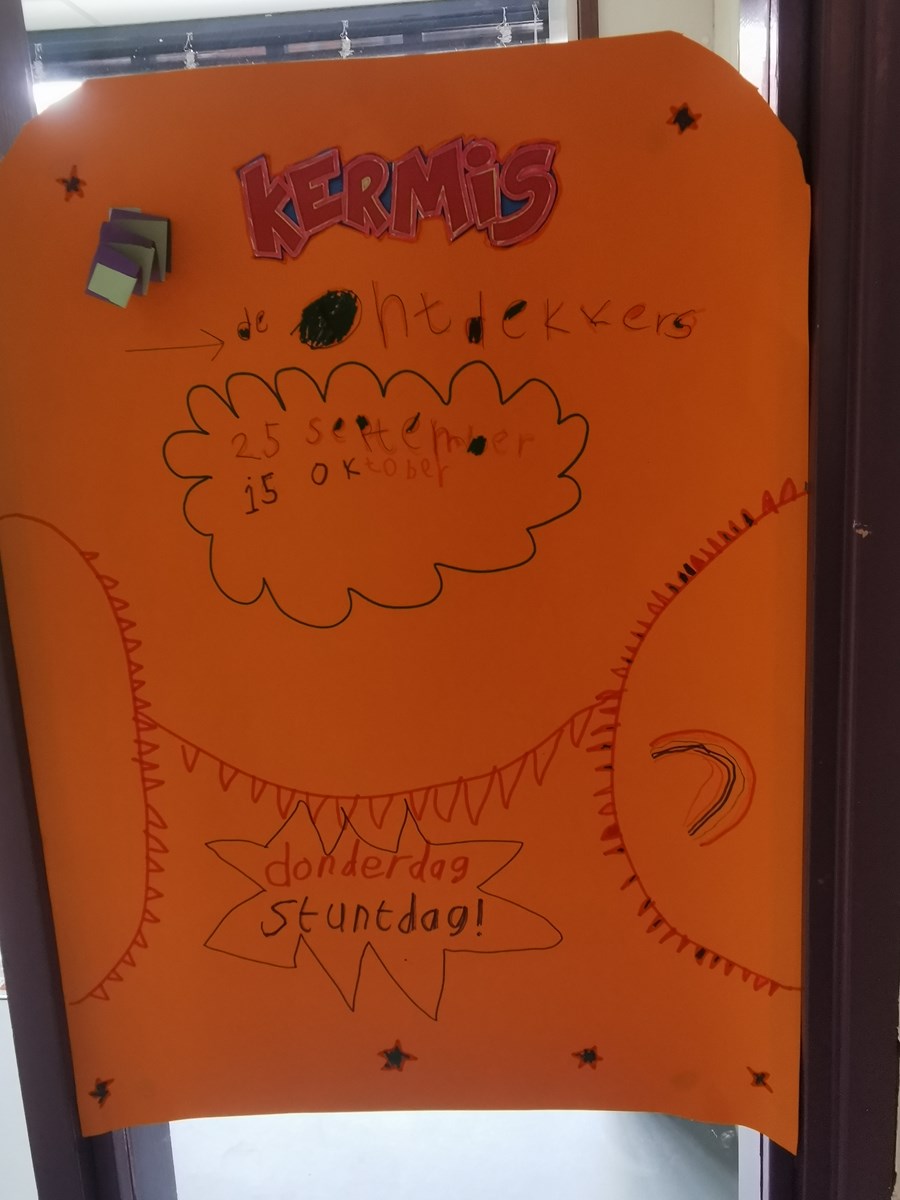 KERMiS
de Ontdekkers
25 september
15 oktober
donderdag
stuntdag!